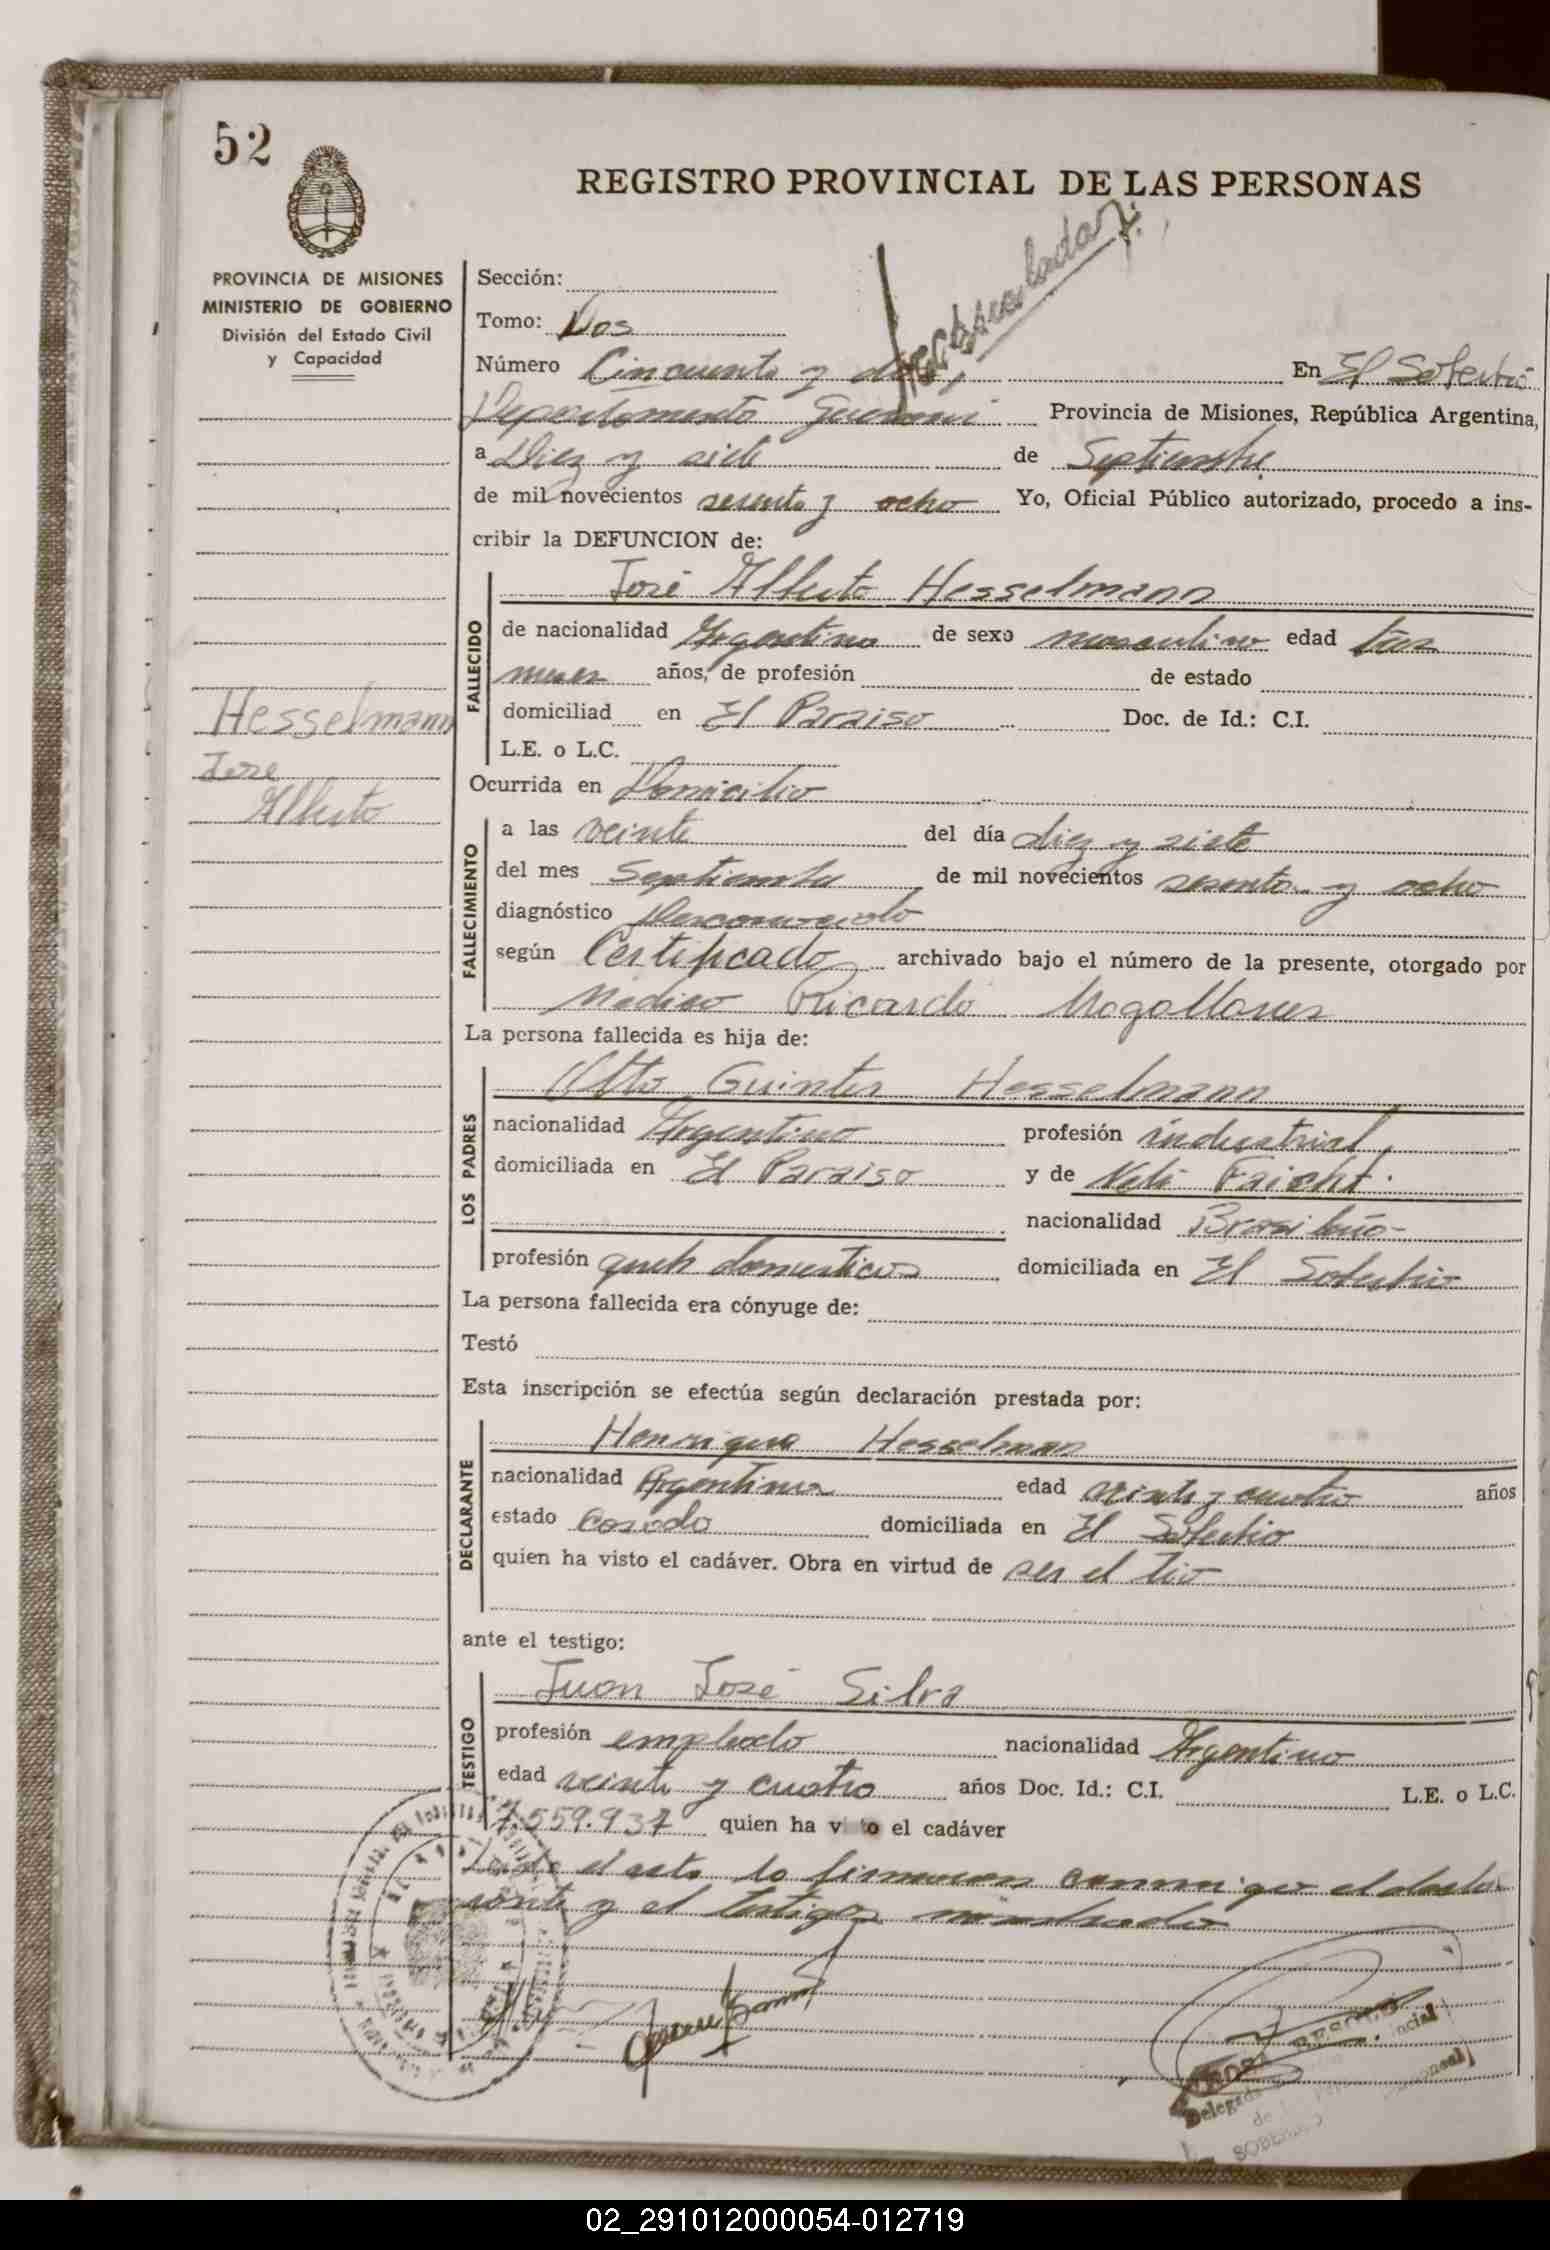 52
REGISTRO PROVINCIAL DE LAS PERSONAS
PROVINCIA DE MISIONES
MINISTERIO DE GOBIERNO
División del Estado Civil
y Capacidad
Sección:
Tomo: Dos
Número Cincuenta y dos, En El Soberbio
Departamento Guaraní Provincia de Misiones, República Argentina,
a Diez y siete de Septiembre
de mil novecientos sesenta y ocho Yo, Oficial Público autorizado, procedo a ins-
cribir la DEFUNCION de:
FALLECIDO
José Alberto Hesselmann
de nacionalidad Argentino de sexo masculino edad tres
meses años, de profesión de estado
domiciliad en El Paraiso Doc. de Id.: C.I.
L.E. o L.C.
Hesselmann
Jose
Alberto
Ocurrida en Domicilio
FALLECIMIENTO
a las veinte del día diez y siete
del mes Septiembre de mil novecientos sesenta y ocho
diagnóstico Desconocido
según Certificado archivado bajo el número de la presente, otorgado por
Médico Ricardo Magallanes
La persona fallecida es hija de:
LOS PADRES
Otto Guinter Hesselmann
nacionalidad Argentino profesión industrial
domiciliada en El Paraiso y de Neli Faicht.
nacionalidad Brasileño
profesión queh domesticos domiciliada en El Soberbio
La persona fallecida era cónyuge de:
Testó
Esta inscripción se efectúa según declaración prestada por:
DECLARANTE
Henrique Hesselman
nacionalidad Argentina edad veinte y cuatro años
estado casado domiciliada en El Soberbio
quien ha visto el cadáver. Obra en virtud de ser el tio
ante el testigo:
TESTIGO
Juan José Silva
profesión empleado nacionalidad Argentino
edad veinte y cuatro años Doc. Id.: C.I. L.E. o L.C.
7.559.937 quien ha visto el cadáver
Leida el acta lo firmaron conmigo el decla
rante y el testigo
Delegado
02_291012000054-012719